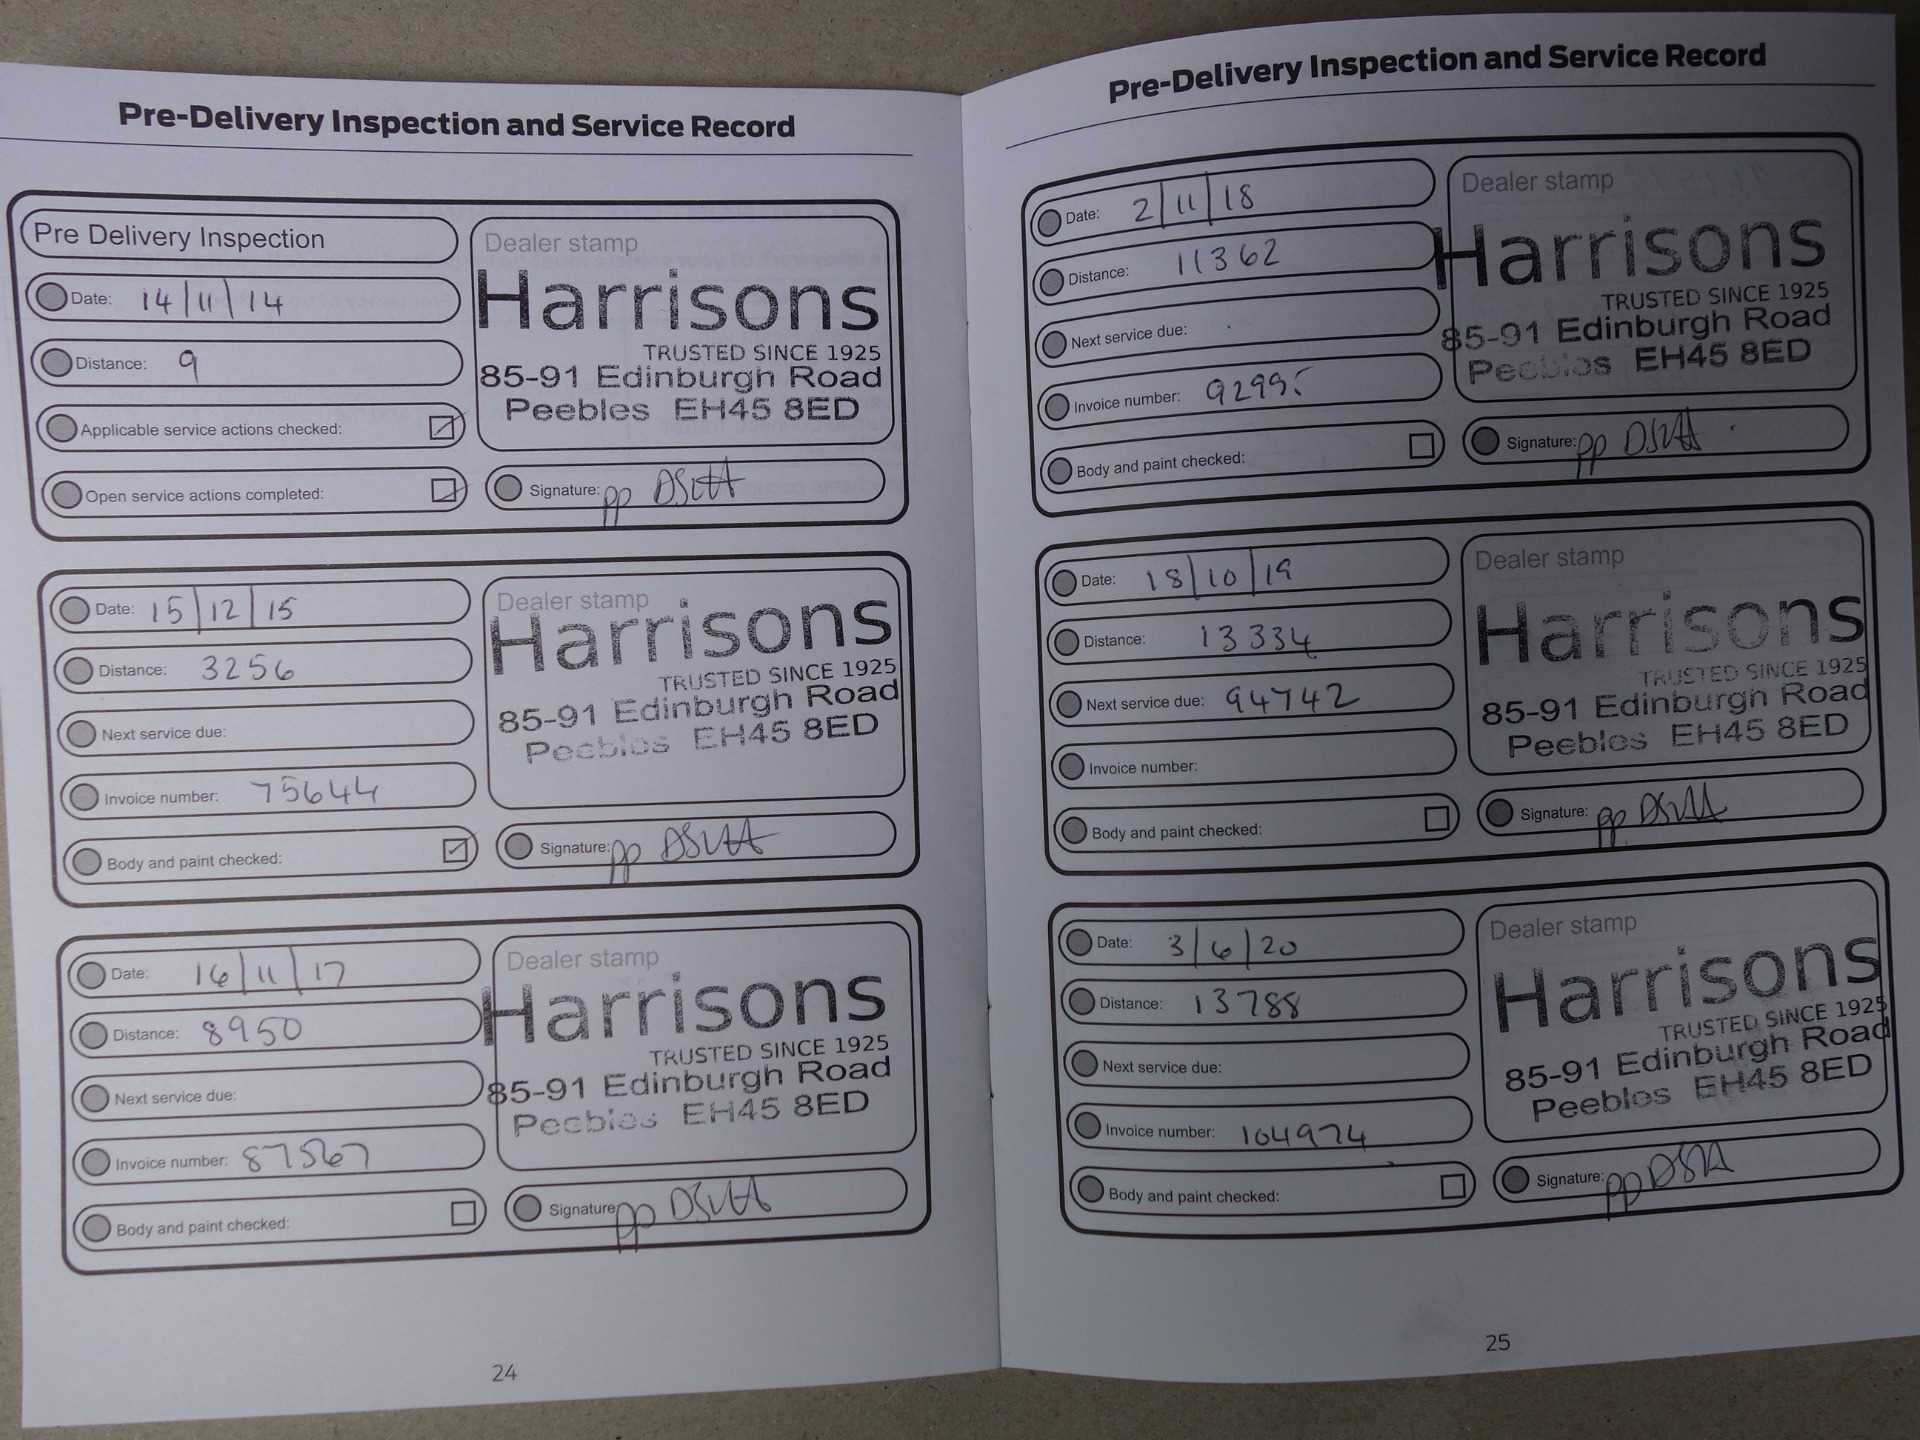 Pre-Delivery Inspection and Service Record
Pre Delivery Inspection
Date: 14/11/14
Distance: 9
Applicable service actions checked:
Open service actions completed:
Dealer stamp
Harrisons
TRUSTED SINCE 1925
85-91 Edinburgh Road
Peebles EH45 8ED
Signature: pp
Date: 15/12/15
Distance: 3256
Next service due:
Invoice number: 75644
Body and paint checked:
Dealer stamp
Harrisons
TRUSTED SINCE 1925
85-91 Edinburgh Road
Peebles EH45 8ED
Signature: pp
Date: 16/11/17
Distance: 8950
Next service due:
Invoice number: 87567
Body and paint checked:
Dealer stamp
Harrisons
TRUSTED SINCE 1925
85-91 Edinburgh Road
Peebles EH45 8ED
Signature: pp
24
Pre-Delivery Inspection and Service Record
Date: 2/11/18
Distance: 11362
Next service due:
Invoice number: 92995
Body and paint checked:
Dealer stamp
Harrisons
TRUSTED SINCE 1925
85-91 Edinburgh Road
Peebles EH45 8ED
Signature: pp
Date: 18/10/19
Distance: 13334
Next service due: 94742
Invoice number:
Body and paint checked:
Dealer stamp
Harrisons
TRUSTED SINCE 1925
85-91 Edinburgh Road
Peebles EH45 8ED
Signature: pp
Date: 3/6/20
Distance: 13788
Next service due:
Invoice number: 104974
Body and paint checked:
Dealer stamp
Harrisons
TRUSTED SINCE 1925
85-91 Edinburgh Road
Peebles EH45 8ED
Signature: pp
25